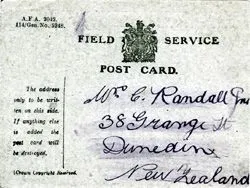 A.F.A. 2042.
114/Gen. No./5248.
FIELD SERVICE
POST CARD.
The address
only to be
written on
this side.
If anything
else is added
the post card
will be
destroyed.
[Crown Copyright Reserved.
Mrs C. Randall
38 Grange St
Dunedin
New Zealand